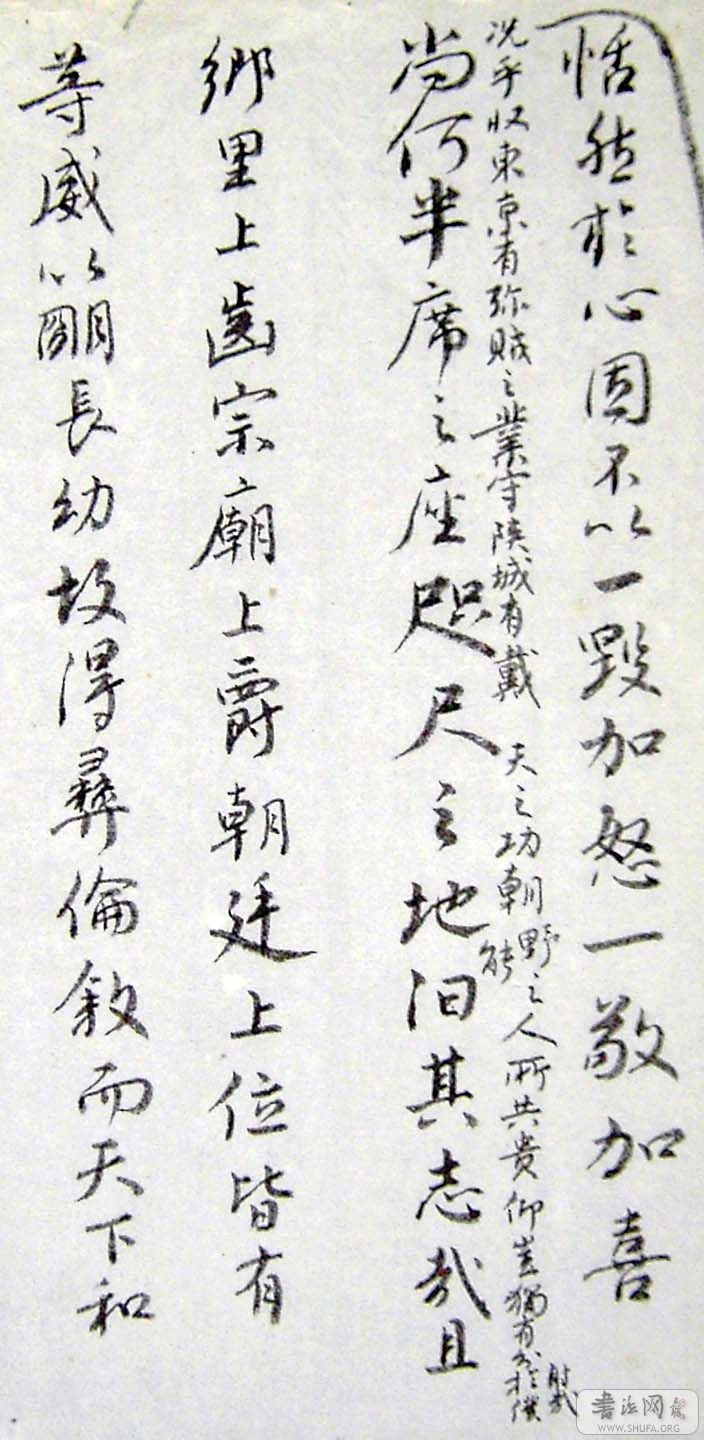 恬然於心固不以一毀加怒一敬加喜
况乎收東京有殄賊之業守陝城有戴天之功朝野之人所共贵仰豈獨有分於僕射哉
能
尚何半席之座咫尺之地汩其志哉且
鄉里上齒宗廟上爵朝廷上位皆有
等威以明長幼故得彝倫敘而天下和
書法网
WWW.SHUFA.ORG